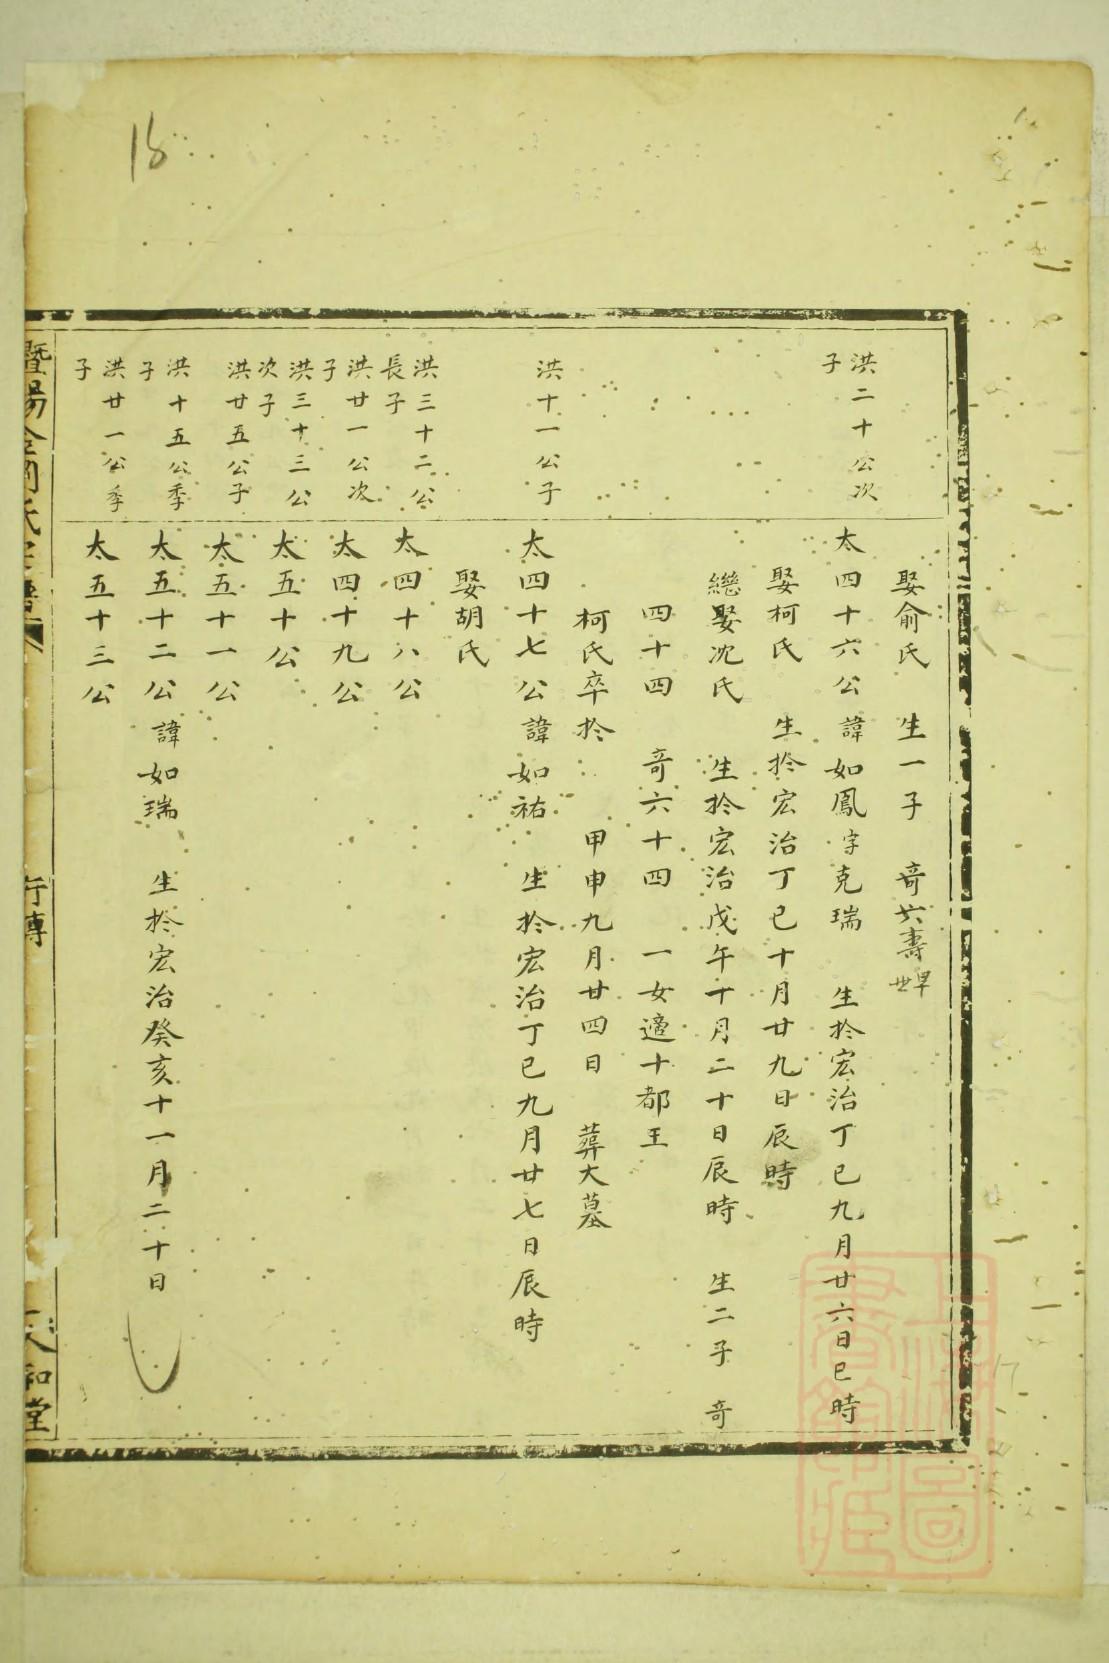 18
娶俞氏 生一子 奇六壽
洪二十公次
子
太四十六公諱如鳳字克瑞 生於宏治丁巳九月廿六日巳時
娶柯氏 生於宏治丁巳十月廿九日辰時
繼娶沈氏 生於宏治戊午十月二十日辰時 生二子 奇
四十四 奇六十四 一女適十都王
柯氏卒於 甲申九月廿四日 葬大墓
洪十一公子
太四十七公諱如祐 生於宏治丁巳九月廿七日辰時
娶胡氏
洪三十二公
長子
太四十八公
洪廿一公次
子
太四十九公
洪三十三公
次子
太五十公
洪廿五公子
太五十一公
洪十五公季
子
太五十二公諱如瑞 生於宏治癸亥十一月二十日
洪廿一公季
子
太五十三公
暨陽
氏宗譜
行傳
和堂
上海圖
書館藏